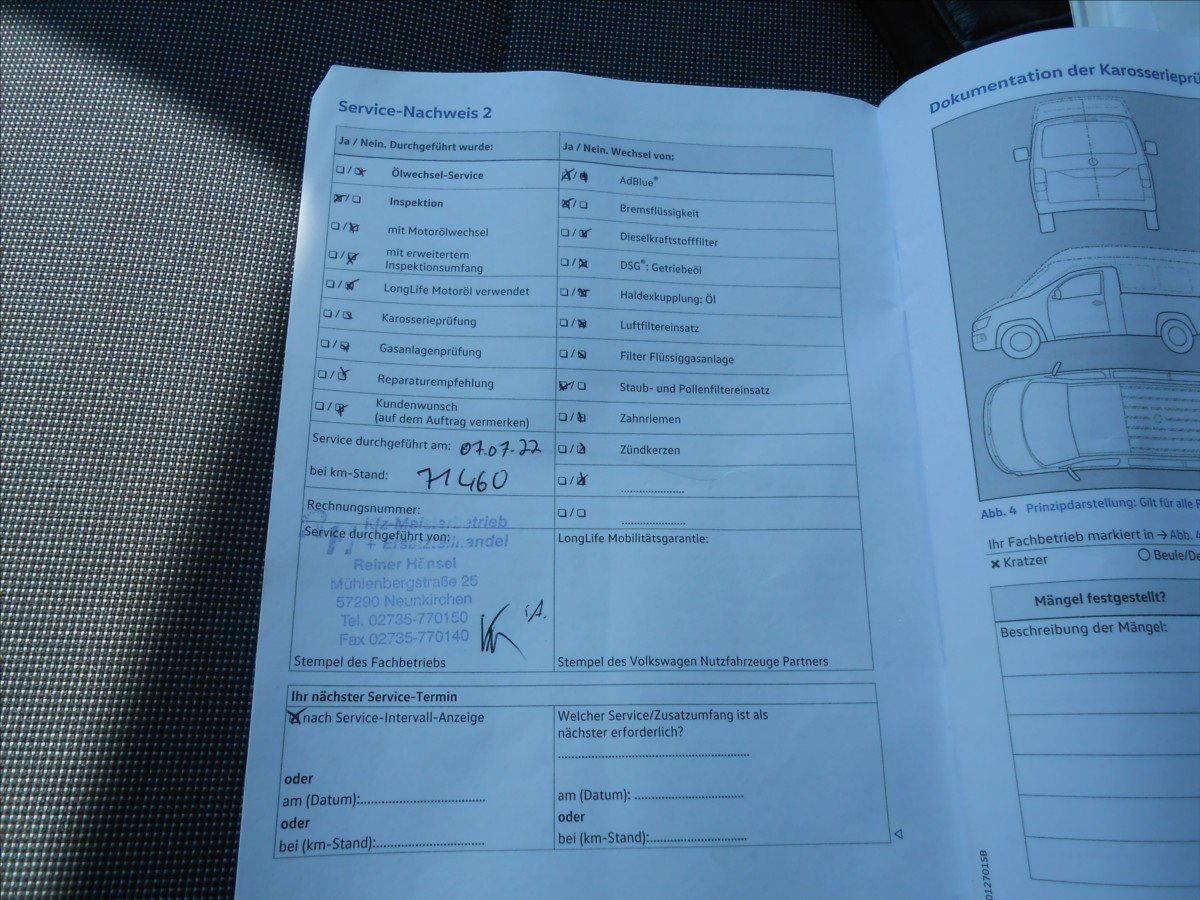 Service-Nachweis 2
Ja / Nein. Durchgeführt wurde:
Ölwechsel-Service
Inspektion
mit Motorölwechsel
mit erweitertem
Inspektionsumfang
LongLife Motoröl verwendet
Karosserieprüfung
Gasanlagenprüfung
Reparaturempfehlung
Kundenwunsch
(auf dem Auftrag vermerken)
Service durchgeführt am: 07.07.22
bei km-Stand: 71460
Rechnungsnummer:
Service durchgeführt von:
Kfz-Meisterbetrieb
Reiner Hänsel
Mühlenbergstraße 25
57290 Neunkirchen
Tel. 02735-770150
Fax 02735-770140
i.A.
Stempel des Fachbetriebs
Ja / Nein. Wechsel von:
AdBlue®
Bremsflüssigkeit
Dieselkraftstofffilter
DSG®: Getriebeöl
Haldexkupplung: Öl
Luftfiltereinsatz
Filter Flüssiggasanlage
Staub- und Pollenfiltereinsatz
Zahnriemen
Zündkerzen
LongLife Mobilitätsgarantie:
Stempel des Volkswagen Nutzfahrzeuge Partners
Ihr nächster Service-Termin
nach Service-Intervall-Anzeige
oder
am (Datum):
oder
bei (km-Stand):
Welcher Service/Zusatzumfang ist als
nächster erforderlich?
am (Datum):
oder
bei (km-Stand):
Dokumentation der
Abb. 4 Prinzipdarstellung: Gilt für alle
Ihr Fachbetrieb markiert in → Abb. 4
Kratzer
Mängel festgestellt?
Beschreibung der Mängel: